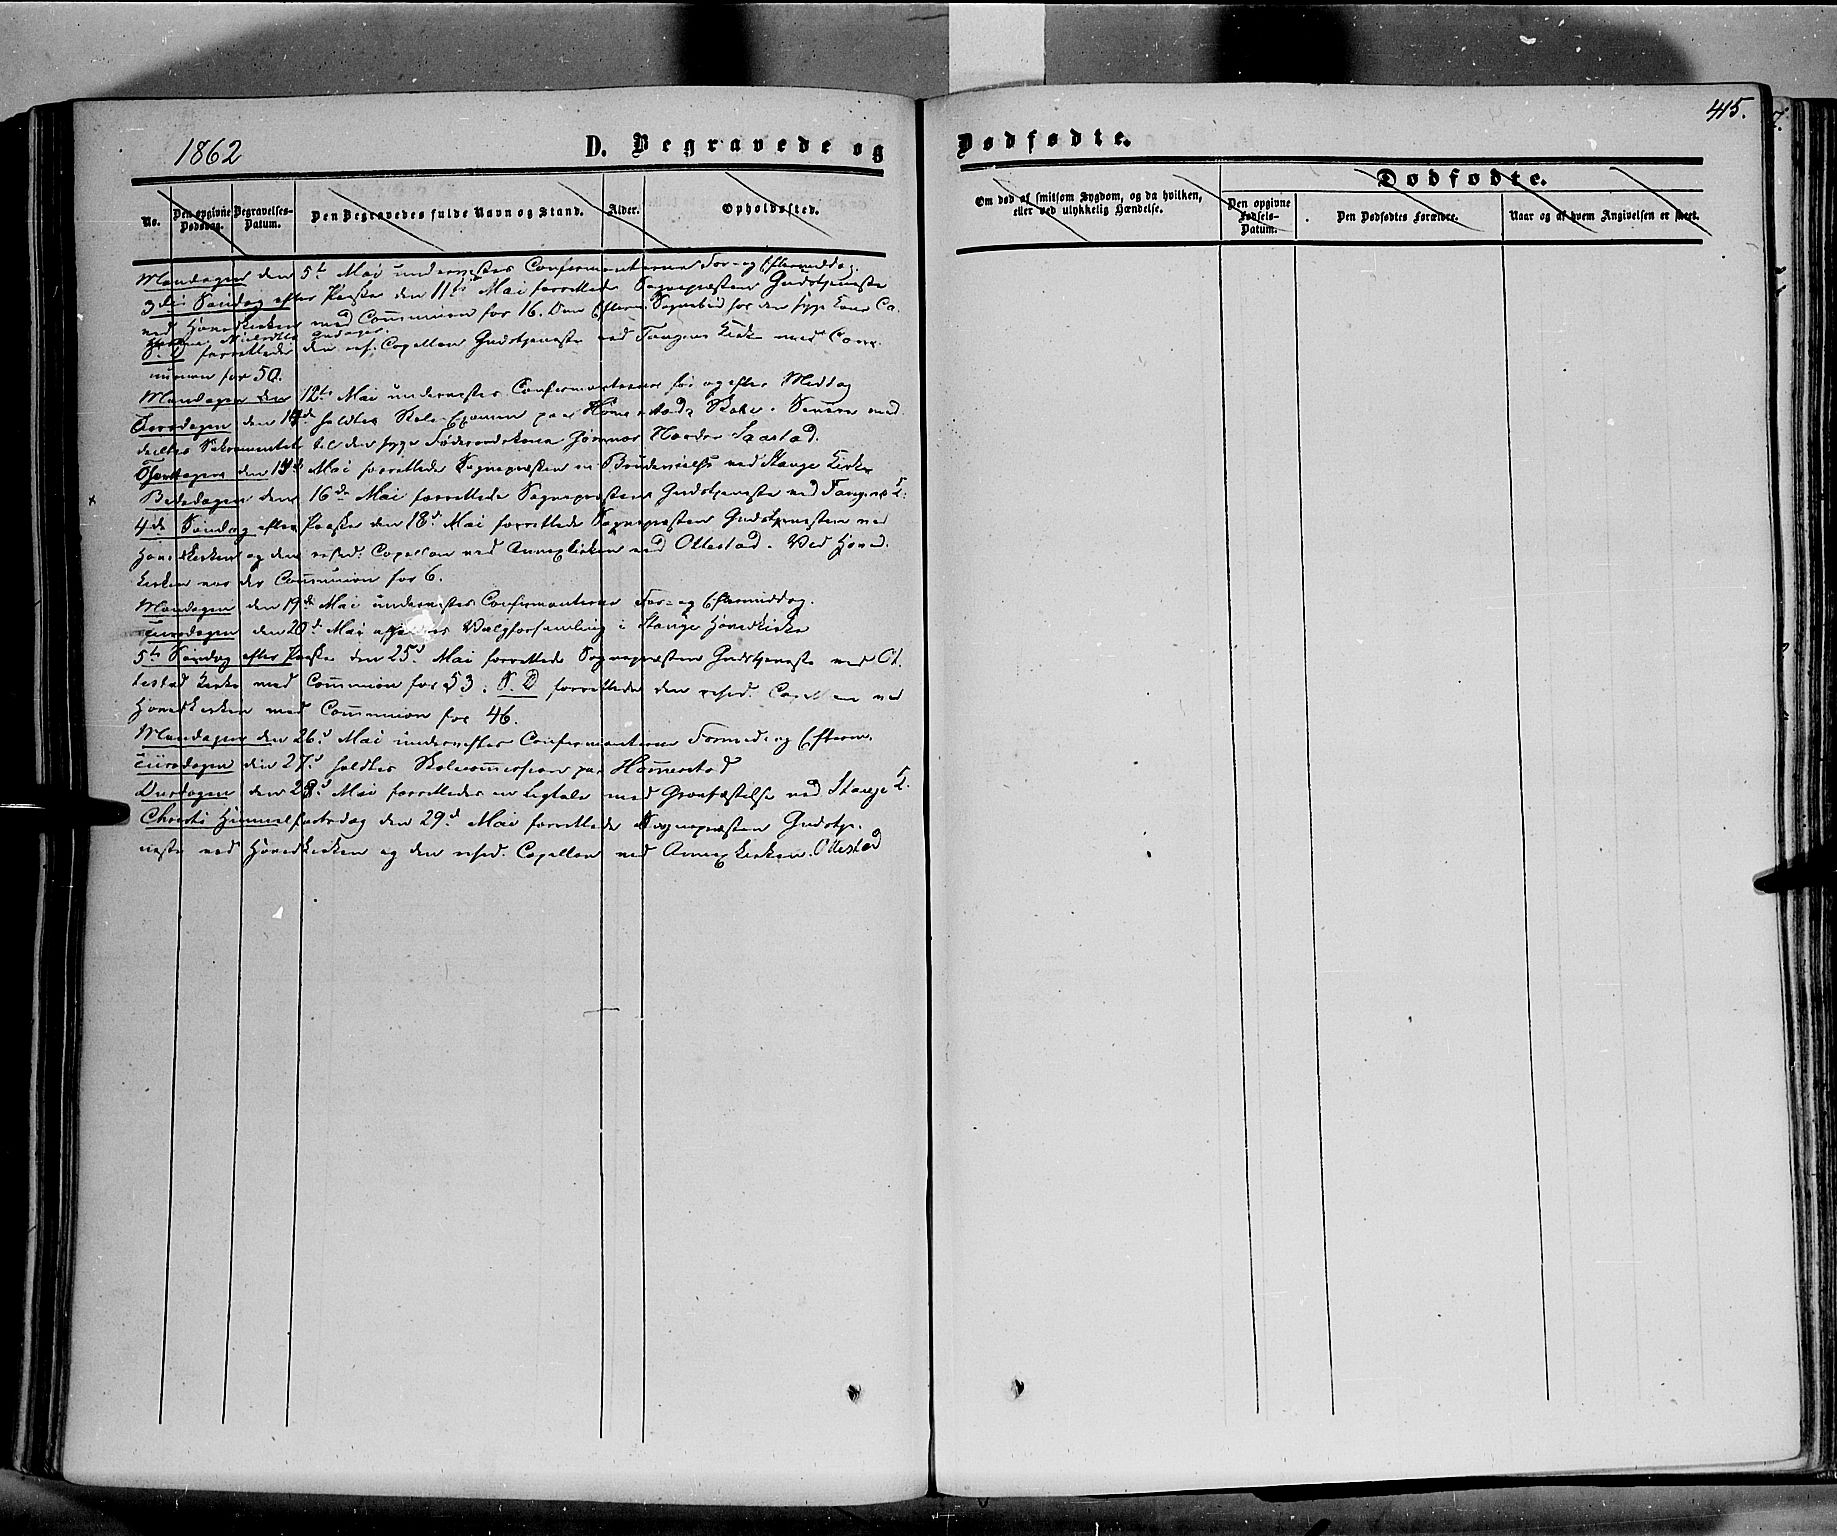 415.
1862
D. Begravede og Dødfødte.
Dødfødte.
No.
Den opgivne Dødsdag.
Begravelses-Datum.
Den Begravedes fulde Navn og Stand.
Alder.
Opholdssted.
Om død af smitsom Sygdom, og da hvilken, eller ved ulykkelig Hændelse.
Den opgivne Fødsels-Datum.
Den Dødfødtes Forældre.
Naar og af hvem Angivelsen er skeet.
Mandagen den 5te Mai undervistes Confirmanterne For- og Eftermiddag.
3die Søndag efter Paaske den 11te Mai forrettede Sognepræsten Gudstjeneste
ved Hovedkirken med Communion for 16. Den Efterm. Sognebud for den syge Kone Ca-
S. D. forrettede den res. Capellan Gudstjeneste ved Tangens Kirke med Com-
munion for 50.
Mandagen den 12te Mai undervistes Confirmanterne før og efter Middag
Tirsdagen den 13de holdtes Skole-Examen paa Hommerstads Skole. Senere med-
deeltes Sakramentet til den syge Føderaadskone Nordre Saastad.
den Mai forrettede Sognepræsten en Brudevielse ved Stange Kirke
Bededagen den 16de Mai forrettede Sognepræsten Gudstjeneste ved Tangens K.
4de Søndag efter Paaske den 18de Mai forrettede Sognepræsten Gudstjenesten ved
Hovedkirken og den resid. Capellan ved Annexkirken ved Ottestad. Ved Hoved-
kirken var der Communion for 6.
Mandagen den 19de Mai undervistes Confirmanterne For- og Eftermiddag.
Tirsdagen den 20de Mai afholdtes Valgforsamling i Stange Hovedkirke
5te Søndag efter Paaske den 25de Mai forrettede Sognepræsten Gudstjeneste ved Ot-
testad Kirke med Communion for 53. S. D. forrettede den resid. Capellan ved
Hovedkirken med Communion for 46.
Mandagen den 26de Mai undervistes Confirmanterne Formid. og Efterm.
Tirsdagen den 27de holdtes Skolecommission paa Hommerstad
Onsdagen den 28de Mai forrettedes en Ligtale med Gravfæstelse ved Stange K.
Christi Himmelfartsdag den 29de Mai forrettede Sognepræsten Gudstje-
neste ved Hovedkirken og den resid. Capellan ved Annexkirken Ottestad